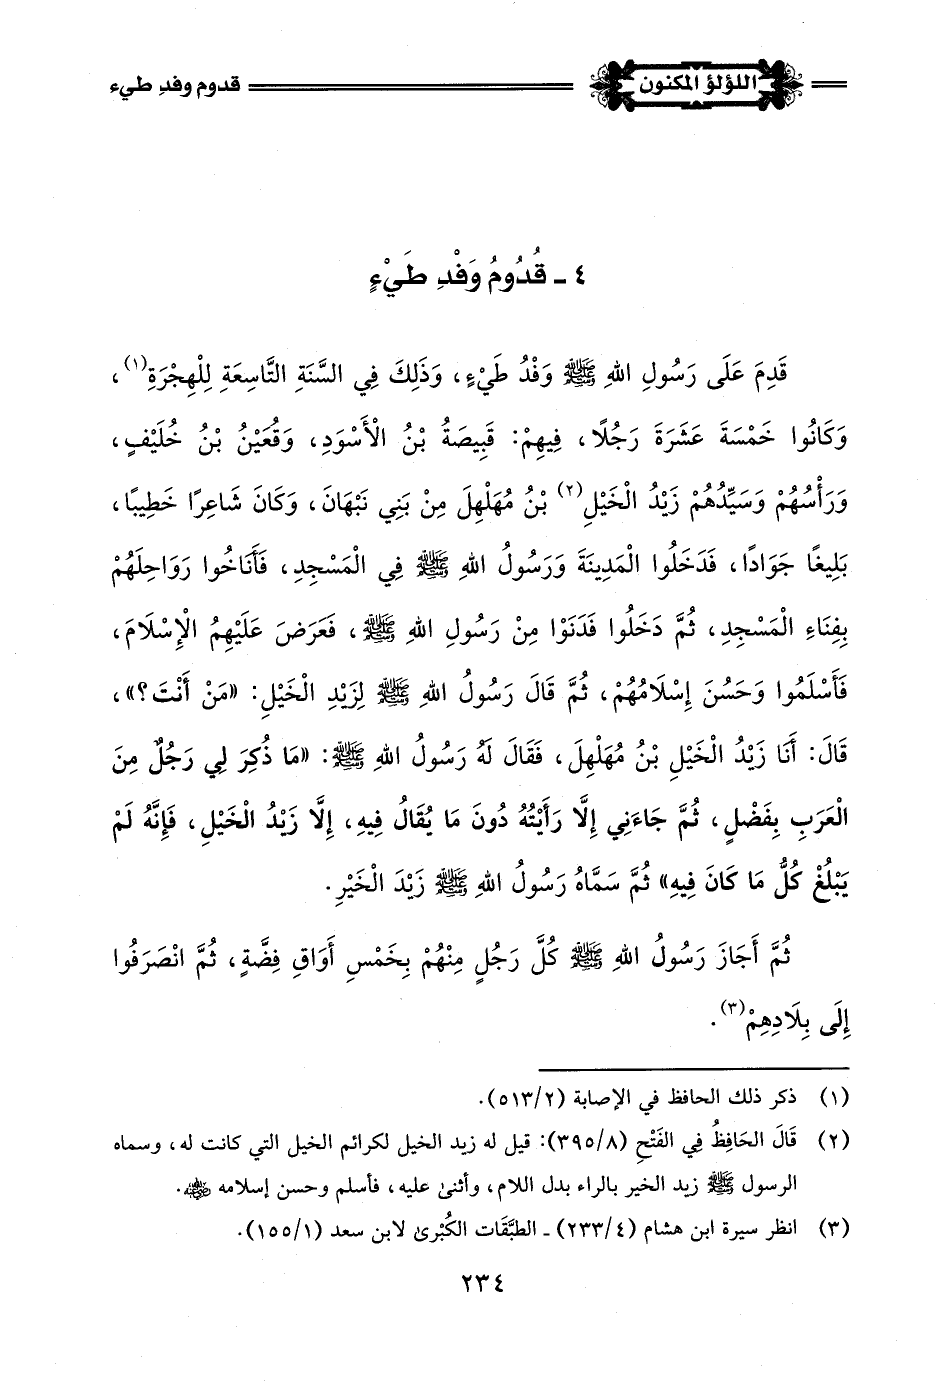 اللؤلؤ المكنون
قدوم وفد طيء
٤ - قُدُومُ وَفْدِ طَيْءٍ
قَدِمَ عَلَى رَسُولِ اللهِ ﷺ وَفْدُ طَيْءٍ، وَذَلِكَ فِي السَّنَةِ التَّاسِعَةِ لِلْهِجْرَةِ(١)،
وَكَانُوا خَمْسَةَ عَشَرَةَ رَجُلًا، فِيهِمْ: قَبِيصَةُ بْنُ الْأَسْوَدِ، وَقُعَيْنُ بْنُ خُلَيْفٍ،
وَرَأْسُهُمْ وَسَيِّدُهُمْ زَيْدُ الْخَيْلِ(٢) بْنُ مُهَلْهِلَ مِنْ بَنِي نَبْهَانَ، وَكَانَ شَاعِرًا خَطِيبًا،
بَلِيغًا جَوَادًا، فَدَخَلُوا الْمَدِينَةَ وَرَسُولُ اللهِ ﷺ فِي الْمَسْجِدِ، فَأَنَاخُوا رَوَاحِلَهُمْ
بِفِنَاءِ الْمَسْجِدِ، ثُمَّ دَخَلُوا فَدَنَوْا مِنْ رَسُولِ اللهِ ﷺ، فَعَرَضَ عَلَيْهِمُ الْإِسْلَامَ،
فَأَسْلَمُوا وَحَسُنَ إِسْلَامُهُمْ، ثُمَّ قَالَ رَسُولُ اللهِ ﷺ لِزَيْدِ الْخَيْلِ: «مَنْ أَنْتَ؟»،
قَالَ: أَنَا زَيْدُ الْخَيْلِ بْنُ مُهَلْهِلَ، فَقَالَ لَهُ رَسُولُ اللهِ ﷺ: «مَا ذُكِرَ لِي رَجُلٌ مِنَ
الْعَرَبِ بِفَضْلٍ، ثُمَّ جَاءَنِي إِلَّا رَأَيْتُهُ دُونَ مَا يُقَالُ فِيهِ، إِلَّا زَيْدُ الْخَيْلِ، فَإِنَّهُ لَمْ
يَبْلُغْ كُلُّ مَا كَانَ فِيهِ» ثُمَّ سَمَّاهُ رَسُولُ اللهِ ﷺ زَيْدَ الْخَيْرِ.
ثُمَّ أَجَازَ رَسُولُ اللهِ ﷺ كُلَّ رَجُلٍ مِنْهُمْ بِخَمْسِ أَوَاقٍ فِضَّةٍ، ثُمَّ انْصَرَفُوا
إِلَى بِلَادِهِمْ(٣).
(١) ذكر ذلك الحافظ في الإصابة (٥١٣/٢).
(٢) قَالَ الحَافِظُ فِي الفَتْحِ (٣٩٥/٨): قيل له زيد الخيل لكرائم الخيل التي كانت له، وسماه
الرسول ﷺ زيد الخير بالراء بدل اللام، وأثنىٰ عليه، فأسلم وحسن إسلامه ﵁.
(٣) انظر سيرة ابن هشام (٢٣٣/٤) ـ الطبَّقَات الكُبْرىٰ لابن سعد (١٥٥/١).
٢٣٤